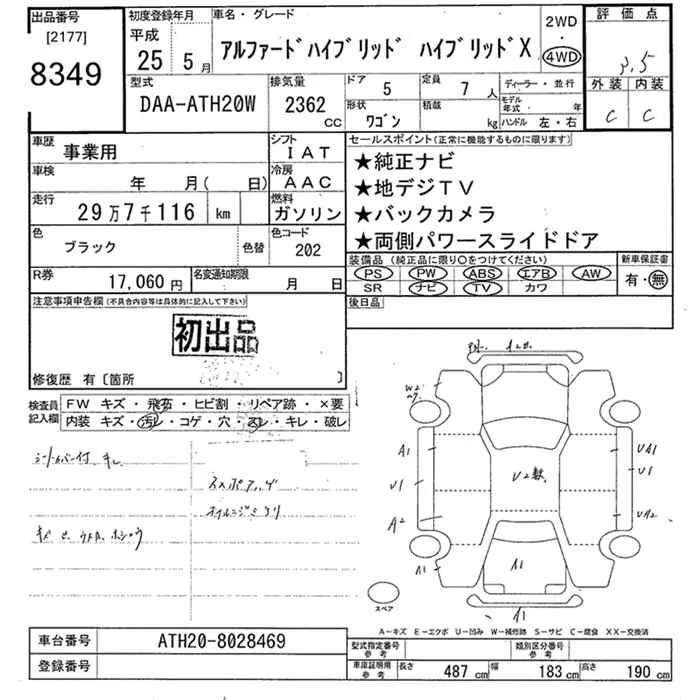 出品番号
[2177]
8349
初度登録年月
平成
25 5月
車名・グレード
アルファードハイブリッド ハイブリッドX
2WD
・
4WD
評価点
3.5
外装 内装
C C
型式
DAA-ATH20W
排気量
2362
CC
ドア
5
定員
7 人
形状
ワゴン
積載
kg
ディーラー・並行
モデル年式 年
ハンドル 左・右
車歴
事業用
シフト
IAT
車検
年 月( 日)
冷房
AAC
走行
29万7千116 km
燃料
ガソリン
色
ブラック
色替
色コード
202
R券
17,060円
名変通知期限
月 日
セールスポイント(正常に機能するものに限ります)
★純正ナビ
★地デジTV
★バックカメラ
★両側パワースライドドア
装備品(純正品に限り○をつけてください)
PS PW ABS エアB AW
SR ナビ TV カワ
新車保証書
有・無
後日品
注意事項申告欄(不具合内容等は具体的に記入して下さい)
初出品
修復歴 有〔箇所 〕
検査員記入欄
FW キズ・飛石・ヒビ割・リペア跡・×要
内装 キズ・汚レ・コゲ・穴・スレ・キレ・破レ
シートカバー付 キレ
W2
A1
U1
A2
A1
U2数
A1
A1
UA1
U1
UA2
スペア
A-キズ E-エクボ U-凹み W-補修跡 S-サビ C-腐食 XX-交換済
車台番号
ATH20-8028469
登録番号
型式指定番号
参考
類別区分番号
参考
車庫証明用
参考
長さ 487 cm
幅 183 cm
高さ 190 cm